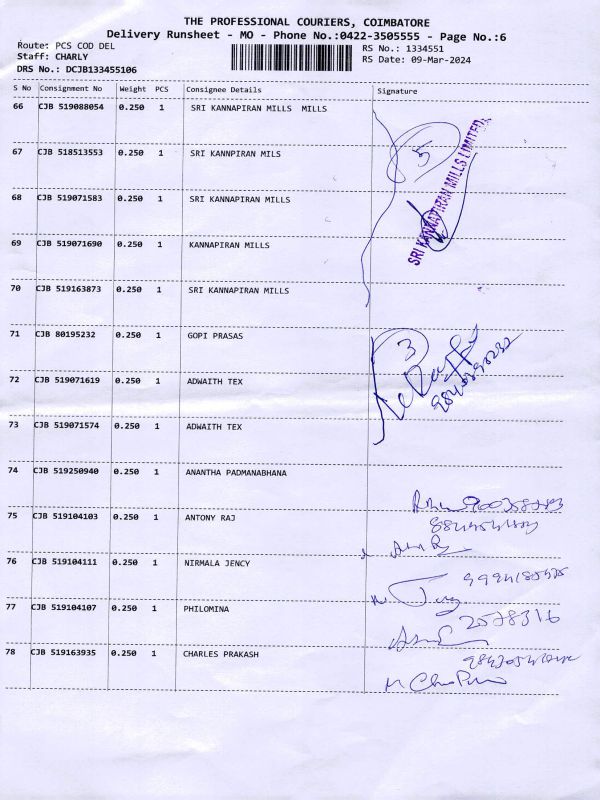 THE PROFESSIONAL COURIERS, COIMBATORE
Delivery Runsheet - MO - Phone No.:0422-3505555 - Page No.:6
Route: PCS COD DEL RS No.: 1334551
Staff: CHARLY RS Date: 09-Mar-2024
DRS No.: DCJB133455106
S No Consignment No Weight PCS Consignee Details Signature
66 CJB 519088054 0.250 1 SRI KANNAPIRAN MILLS MILLS
67 CJB 518513553 0.250 1 SRI KANNPIRAN MILS
5
SRI KANNAPIRAN MILLS LIMITED
68 CJB 519071583 0.250 1 SRI KANNAPIRAN MILLS
69 CJB 519071690 0.250 1 KANNAPIRAN MILLS
70 CJB 519163873 0.250 1 SRI KANNAPIRAN MILLS
71 CJB 80195232 0.250 1 GOPI PRASAS
3
72 CJB 519071619 0.250 1 ADWAITH TEX
73 CJB 519071574 0.250 1 ADWAITH TEX
74 CJB 519250940 0.250 1 ANANTHA PADMANABHANA
75 CJB 519104103 0.250 1 ANTONY RAJ
76 CJB 519104111 0.250 1 NIRMALA JENCY
77 CJB 519104107 0.250 1 PHILOMINA
2578316
78 CJB 519163935 0.250 1 CHARLES PRAKASH